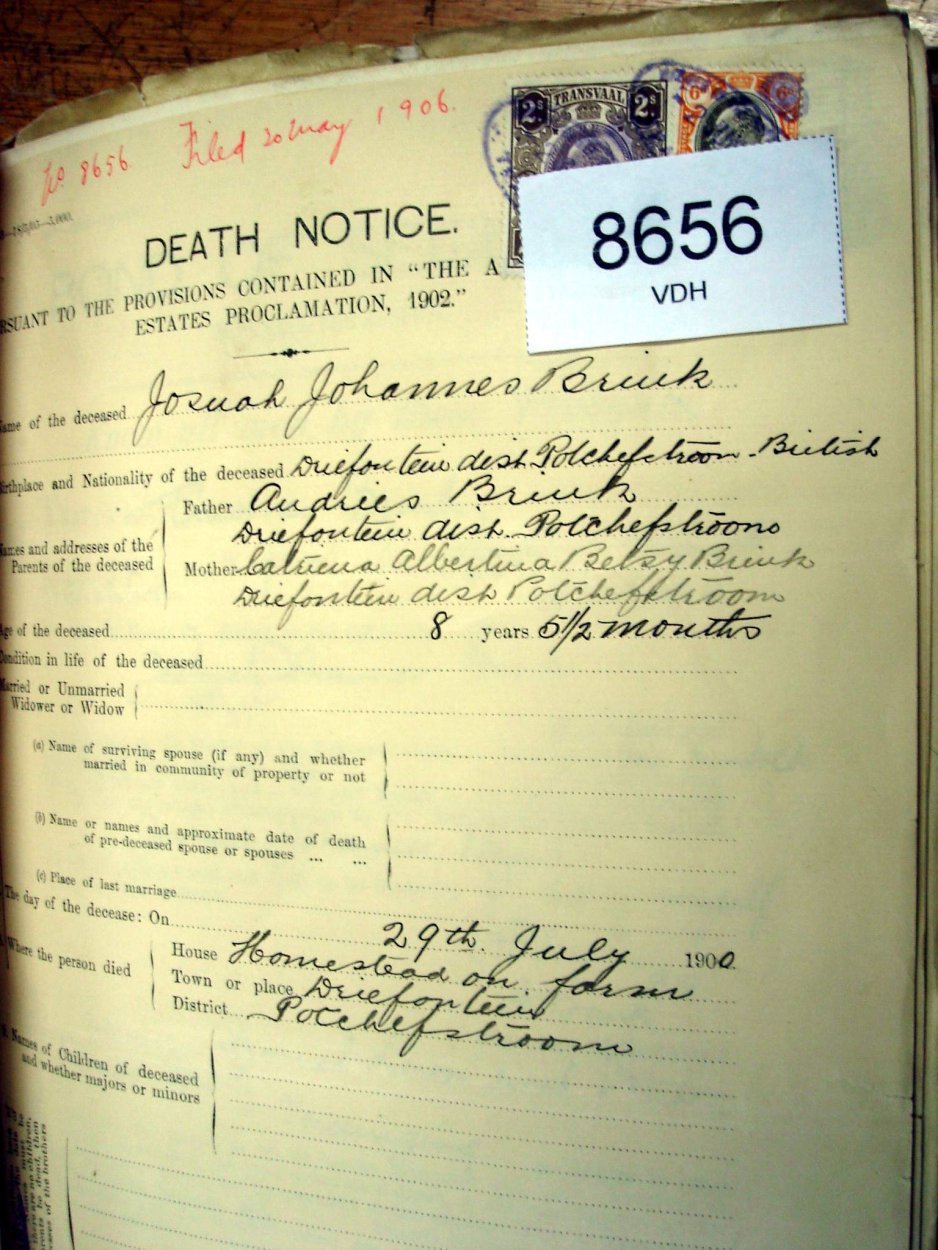 No. 8656 Filed 20 May 1906.
TRANSVAAL
2s 2s
6d 6d
8656
VDH
—5,000.
DEATH NOTICE.
RSUANT TO THE PROVISIONS CONTAINED IN "THE A
ESTATES PROCLAMATION, 1902."
ame of the deceased Josuah Johannes Brink
irthplace and Nationality of the deceased Driefontein dist. Potchefstroom - British
Father Andries Brink
Driefontein dist. Potchefstroom
Names and addresses of the
Parents of the deceased
Mother Catriena Albertina Betsy Brink
Driefontein dist Potchefstroom
Age of the deceased 8 years 5 1/2 months
Condition in life of the deceased
Married or Unmarried
Widower or Widow
(a) Name of surviving spouse (if any) and whether
married in community of property or not
(b) Name or names and approximate date of death
of pre-deceased spouse or spouses ... ...
(c) Place of last marriage
The day of the decease: On 29th July 1900.
Where the person died
House Homestead on farm
Town or place Driefontein
District Potchefstroom
Names of Children of deceased
and whether majors or minors